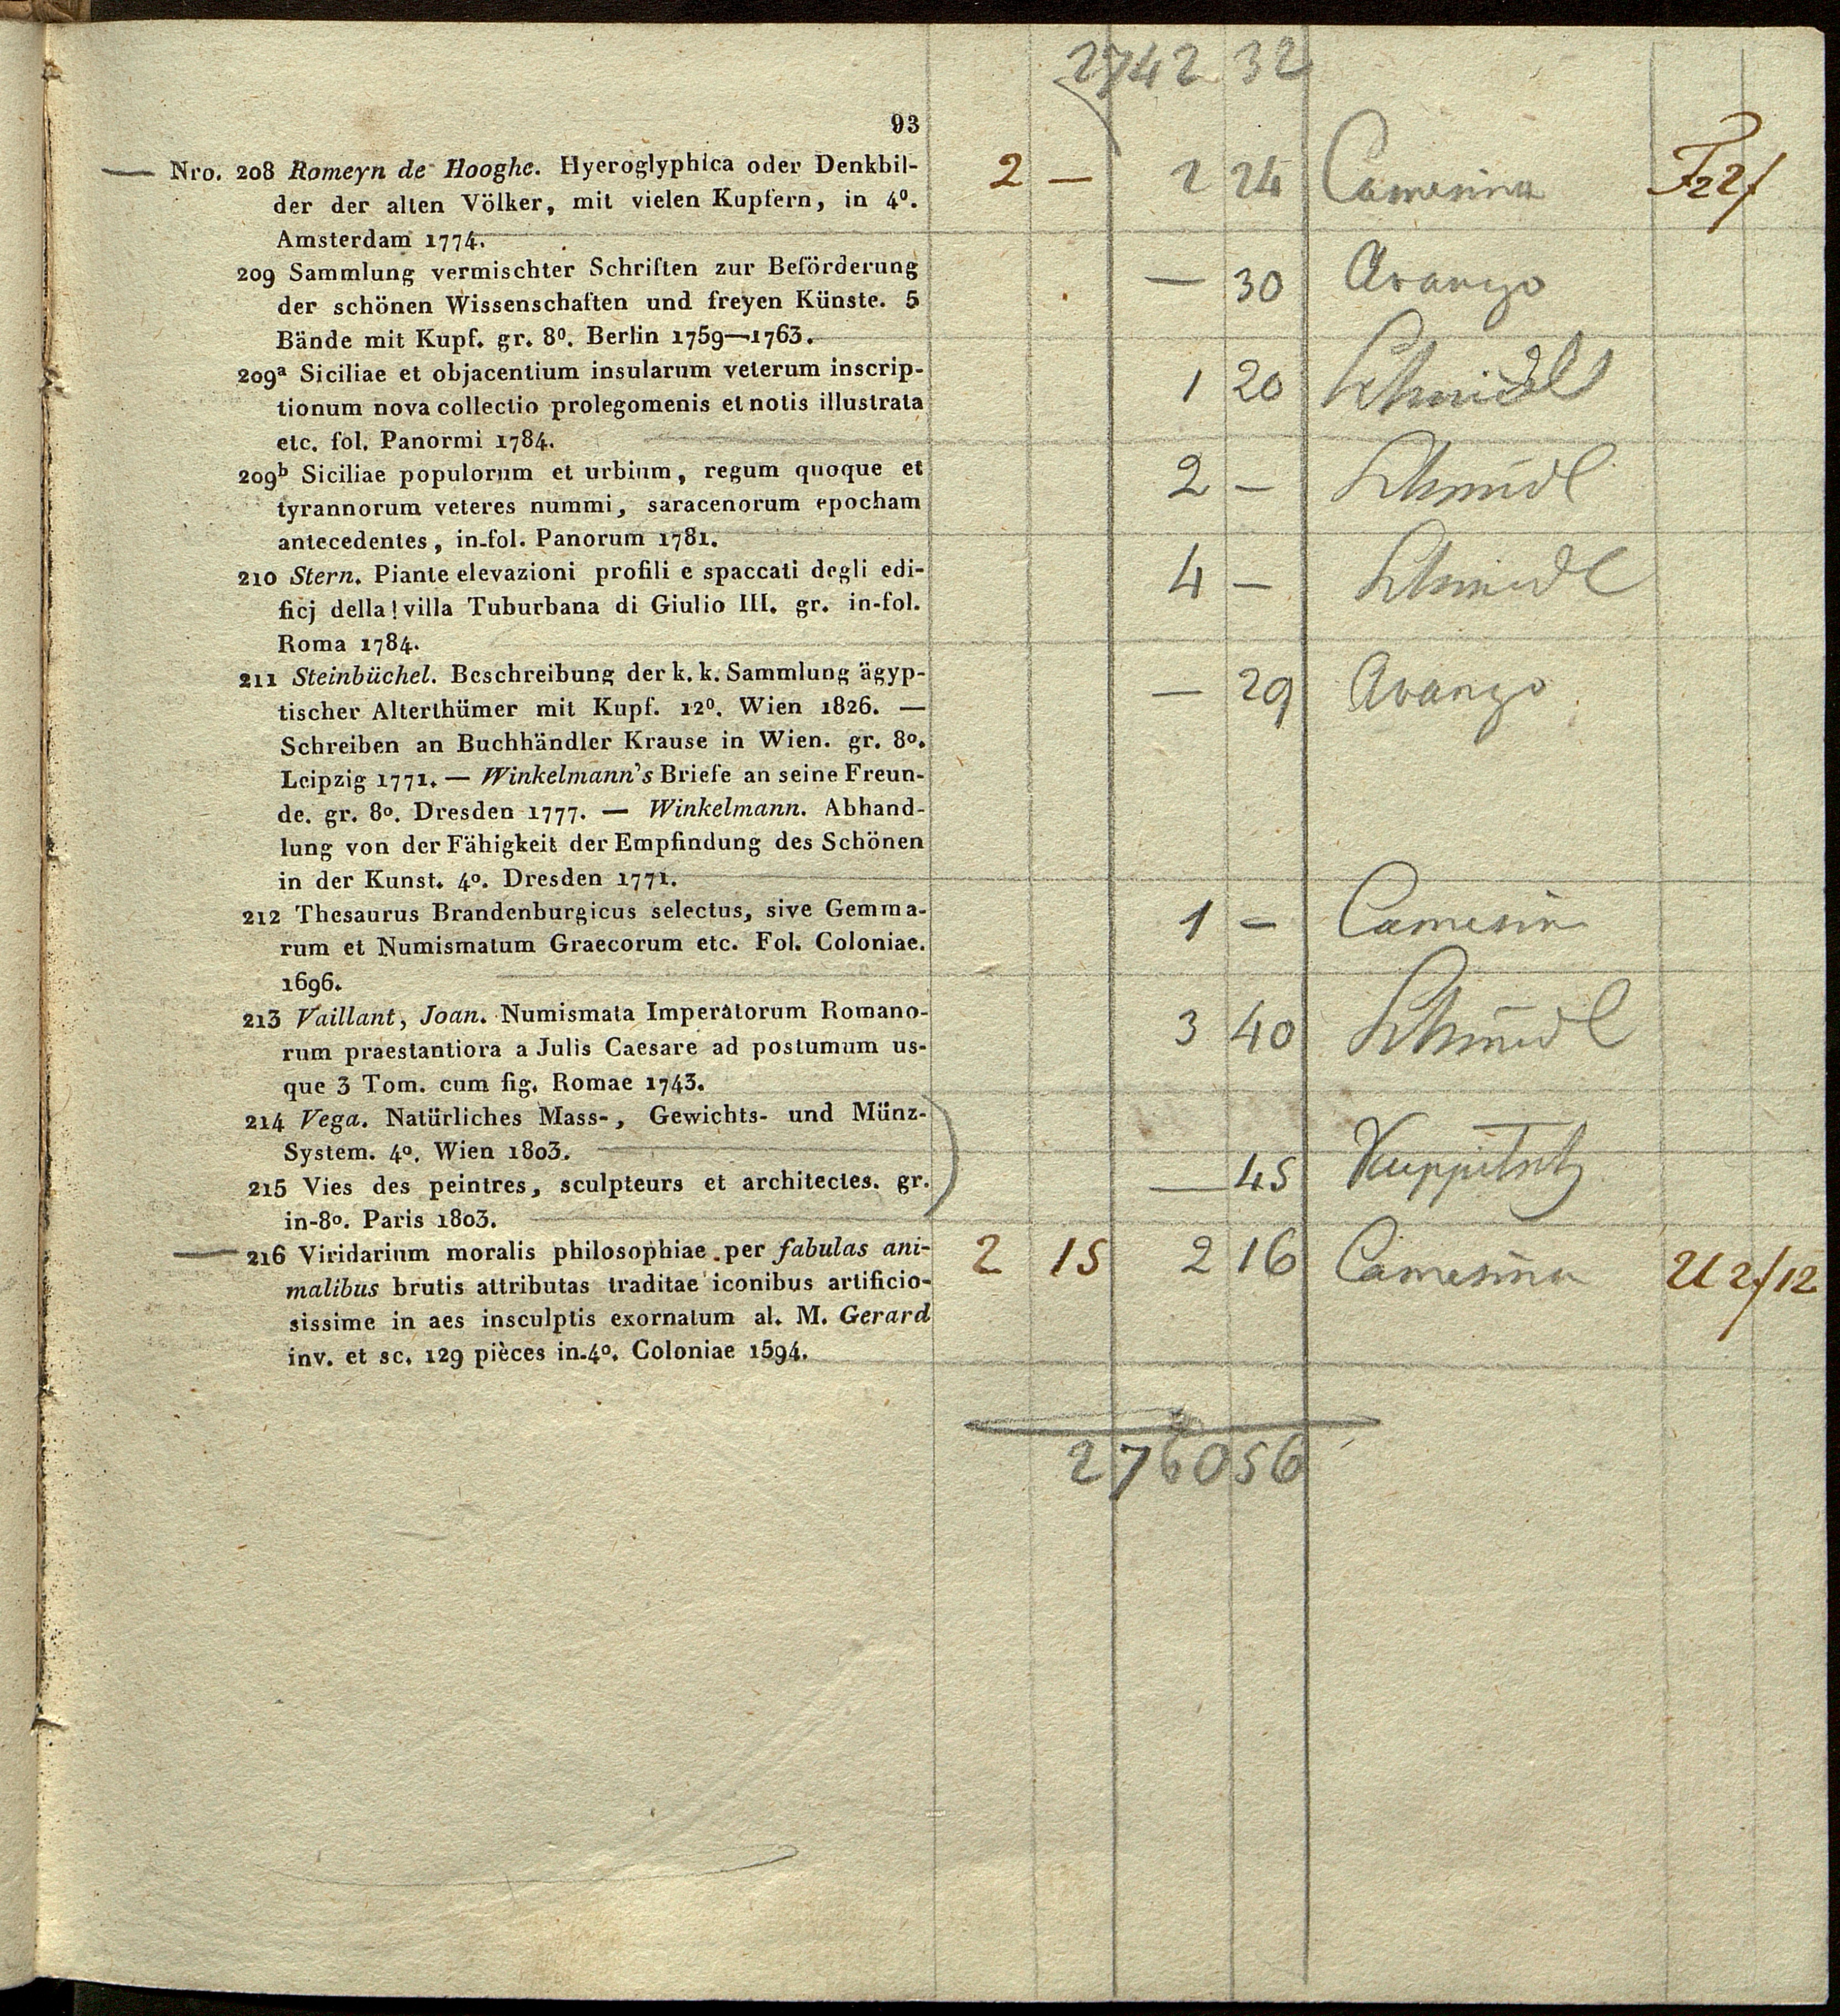 2742 32
93
— Nro. 208 Romeyn de Hooghe. Hyeroglyphica oder Denkbil- 2 — 2 24 Camesina F22f
der der alten Völker, mit vielen Kupfern, in 4º.
Amsterdam 1774.
209 Sammlung vermischter Schriften zur Beförderung — 30 Avanzo
der schönen Wissenschaften und freyen Künste. 5
Bände mit Kupf. gr. 8º. Berlin 1759—1763.
209ª Siciliae et objacentium insularum veterum inscrip- 1 20 Schmidl
tionum nova collectio prolegomenis et notis illustrata
etc. fol. Panormi 1784.
209ᵇ Siciliae populorum et urbium, regum quoque et 2 — Schmidl
tyrannorum veteres nummi, saracenorum epocham
antecedentes, in-fol. Panorum 1781.
210 Stern. Piante elevazioni profili e spaccati degli edi- 4 — Schmidl
ficj della! villa Tuburbana di Giulio III. gr. in-fol.
Roma 1784.
211 Steinbüchel. Beschreibung der k. k. Sammlung ägyp- — 29 Avanzo
tischer Alterthümer mit Kupf. 12º. Wien 1826. —
Schreiben an Buchhändler Krause in Wien. gr. 8º.
Leipzig 1771. — Winkelmann's Briefe an seine Freun-
de. gr. 8º. Dresden 1777. — Winkelmann. Abhand-
lung von der Fähigkeit der Empfindung des Schönen
in der Kunst. 4º. Dresden 1771.
212 Thesaurus Brandenburgicus selectus, sive Gemma- 1 — Camesina
rum et Numismatum Graecorum etc. Fol. Coloniae.
1696.
213 Vaillant, Joan. Numismata Imperatorum Romano- 3 40 Schmidl
rum praestantiora a Julis Caesare ad postumum us-
que 3 Tom. cum fig. Romae 1743.
214 Vega. Natürliches Mass-, Gewichts- und Münz-
System. 4º. Wien 1803.
215 Vies des peintres, sculpteurs et architectes. gr. — 45 Kuppitsch
in-8º. Paris 1803.
— 216 Viridarium moralis philosophiae per fabulas ani- 2 15 2 16 Camesina U 2f 12
malibus brutis attributas traditae iconibus artificio-
sissime in aes insculptis exornatum al. M. Gerard
inv. et sc. 129 pièces in-4º. Coloniae 1594.
2760 56